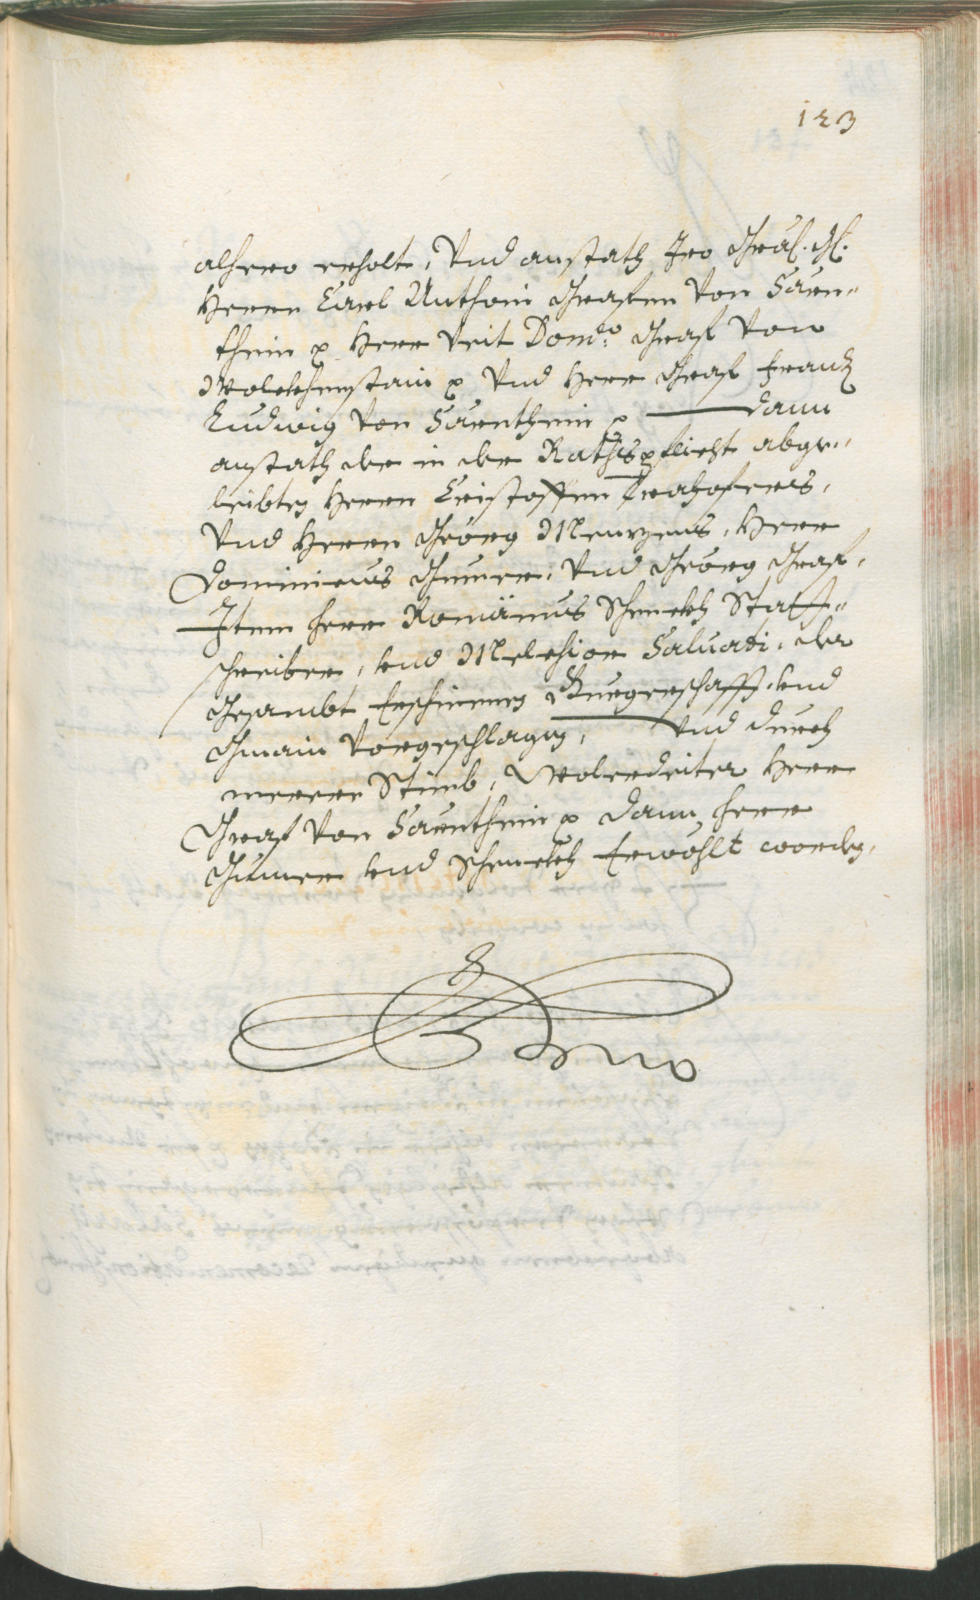 123
alhero erholt, Vnd anstath Iro Gräf. G.
Herrn Carl Anthoni Grafen Von Saren-
thein p Herr Veit Dom:o Graf Von
Wolckhenstain p Vnd Herr Graf Frantz
Ludwig Von Sarnthein p dann
anstath der in der Rathspflicht abge-
leibten Herrn Cristoffen
Vnd Herrn Georg, Herr
Dominicus Gumer, Vnd Georg Graf,
Item herr Romänus Schenckh Statt-
schreiber, vnd Melchior Saluadi, der
Gesambt Erschinnen Burgerschafft vnd
Gmain Vorgeschlagen, Vnd durch
merere Stimb, Woleredeiter Herr
Graf Von Sarnthein p dann herr
Gumer vnd Schenckh Erwöhlt worden,